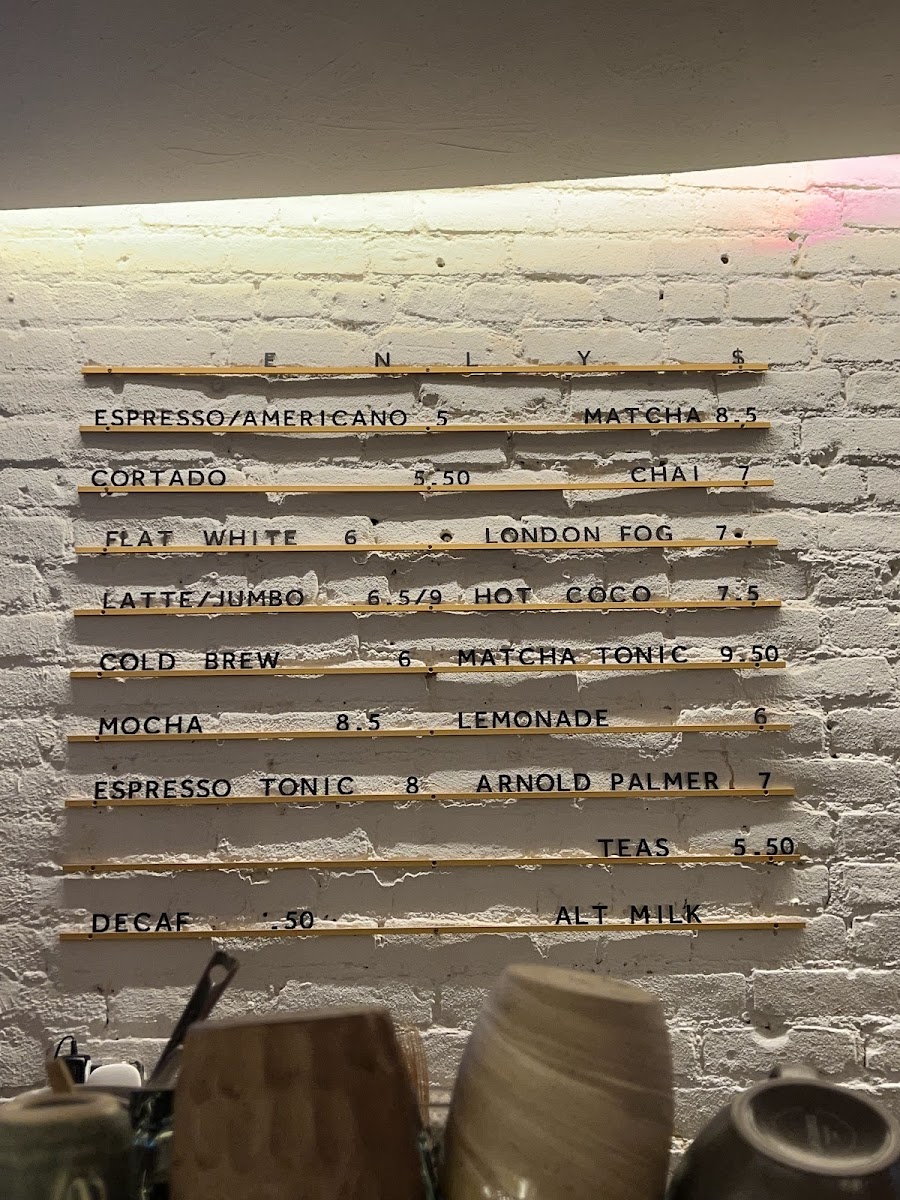 E N L Y $
ESPRESSO/AMERICANO 5 MATCHA 8.5
CORTADO 5.50 CHAI 7
FLAT WHITE 6 LONDON FOG 7
LATTE/JUMBO 6.5/9 HOT COCO 7.5
COLD BREW 6 MATCHA TONIC 9.50
MOCHA 8.5 LEMONADE 6
ESPRESSO TONIC 8 ARNOLD PALMER 7
TEAS 5.50
DECAF .50 ALT MILK